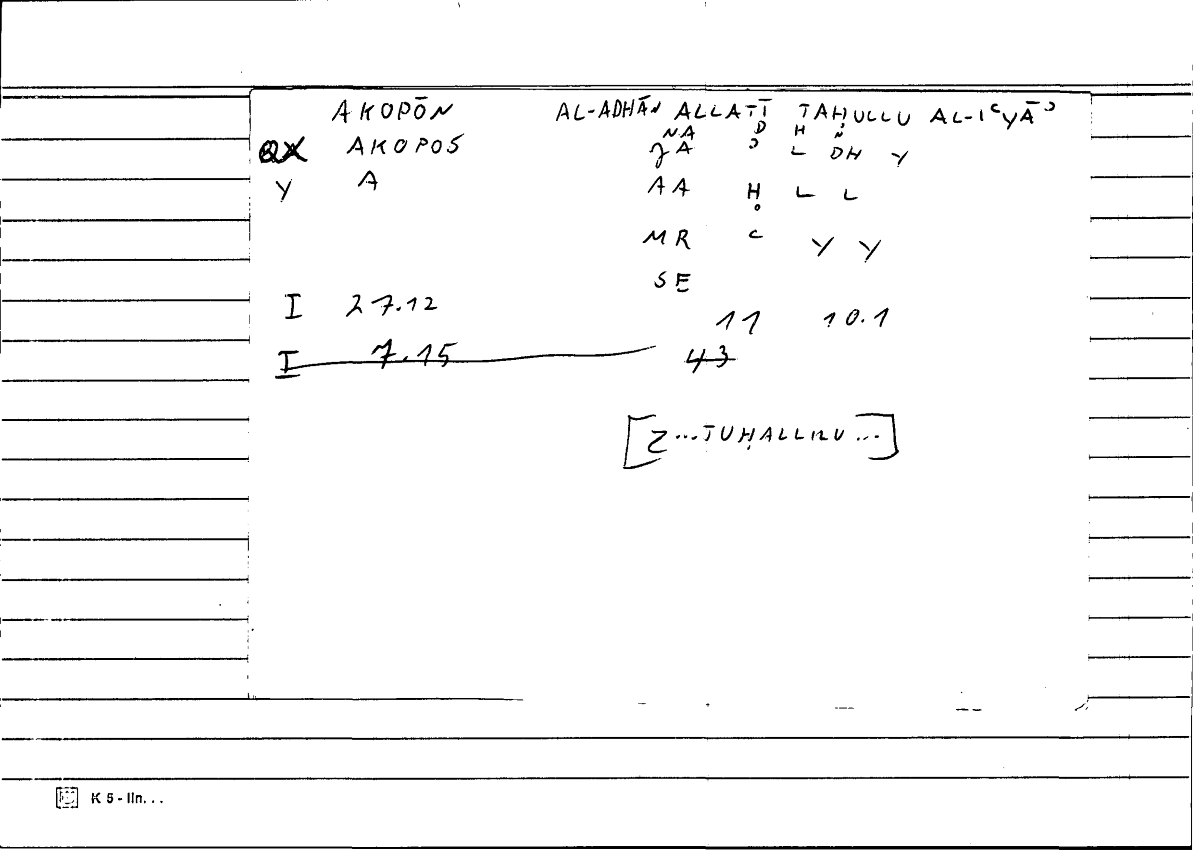 AKOPŌN AL-ADHĀN ALLATĪ TAḤULLU AL-IʿYĀʾ
NA Ḍ H Ṇ
AKOPOS ʾ L DH Y
Y A AA Ḥ L L
MR ʿ Y Y
SE
I 27.12 11 10.1
I 7.15 43
[Z...TUḤALLILU...]
K 5 - lin...